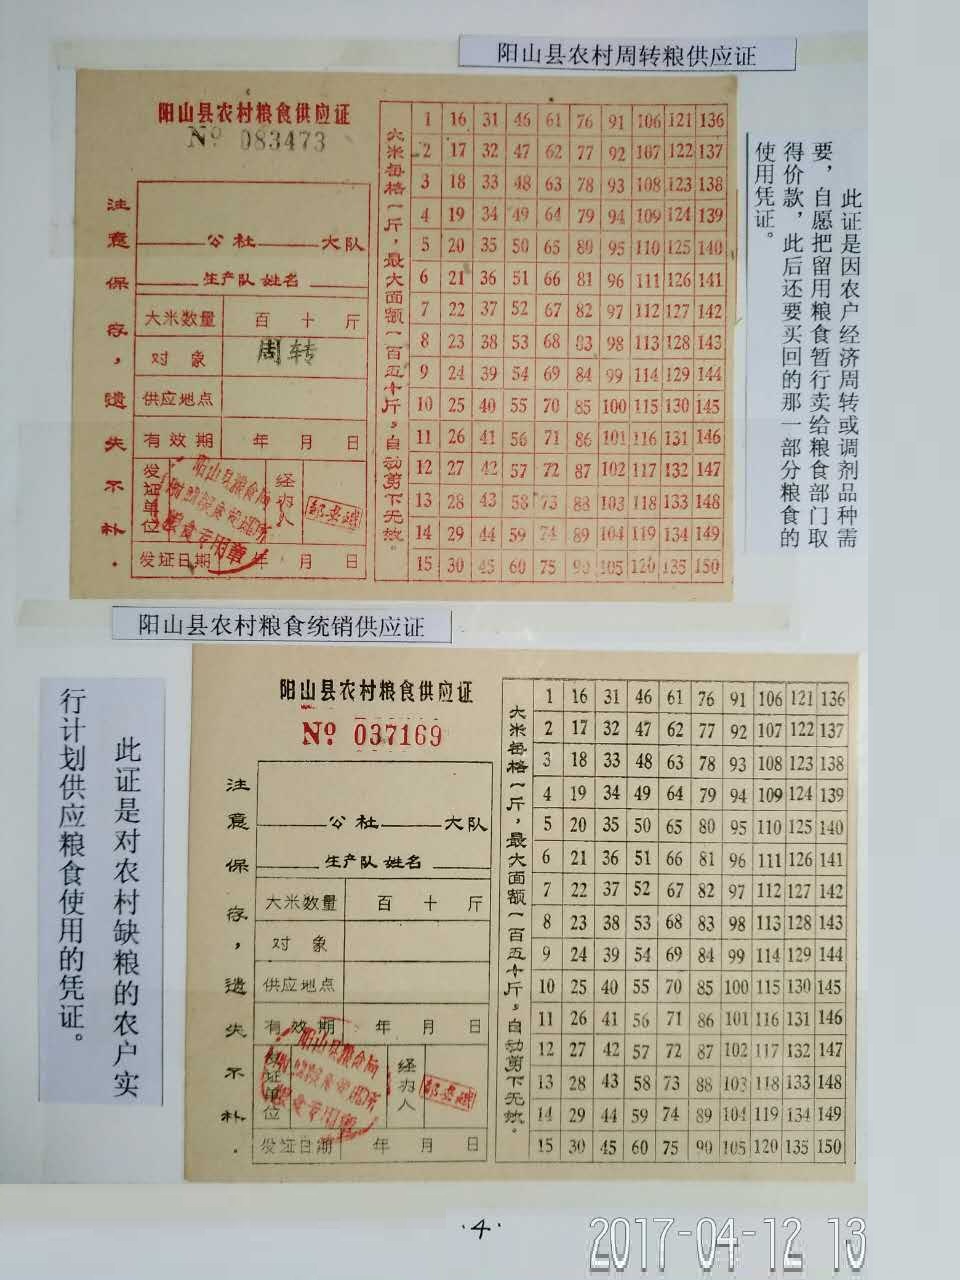 阳山县农村周转粮供应证
阳山县农村粮食供应证
Nº 083473
注意保存，遗失不补.
公社 大队
生产队 姓名
大米数量 百 十 斤
对象 周转
供应地点
有效期 年 月 日
发证单位 经办人
阳山县粮食局
粮食专用章
发证日期 年 月 日
大米每格一斤，最大面额一百五十斤，自动剪下无效。
1 16 31 46 61 76 91 106 121 136
2 17 32 47 62 77 92 107 122 137
3 18 33 48 63 78 93 108 123 138
4 19 34 49 64 79 94 109 124 139
5 20 35 50 65 80 95 110 125 140
6 21 36 51 66 81 96 111 126 141
7 22 37 52 67 82 97 112 127 142
8 23 38 53 68 83 98 113 128 143
9 24 39 54 69 84 99 114 129 144
10 25 40 55 70 85 100 115 130 145
11 26 41 56 71 86 101 116 131 146
12 27 42 57 72 87 102 117 132 147
13 28 43 58 73 88 103 118 133 148
14 29 44 59 74 89 104 119 134 149
15 30 45 60 75 90 105 120 135 150
此证是因农户经济周转或调剂品种需
要，自愿把留用粮食暂行卖给粮食部门取
得价款，此后还要买回的那一部分粮食的
使用凭证。
阳山县农村粮食统销供应证
此证是对农村缺粮的农户实
行计划供应粮食使用的凭证。
阳山县农村粮食供应证
Nº 037169
注意保存，遗失不补.
公社 大队
生产队 姓名
大米数量 百 十 斤
对象
供应地点
有效期 年 月 日
发证单位 经办人
阳山县粮食局
粮食专用章
发证日期 年 月 日
大米每格一斤，最大面额一百五十斤，自动剪下无效。
1 16 31 46 61 76 91 106 121 136
2 17 32 47 62 77 92 107 122 137
3 18 33 48 63 78 93 108 123 138
4 19 34 49 64 79 94 109 124 139
5 20 35 50 65 80 95 110 125 140
6 21 36 51 66 81 96 111 126 141
7 22 37 52 67 82 97 112 127 142
8 23 38 53 68 83 98 113 128 143
9 24 39 54 69 84 99 114 129 144
10 25 40 55 70 85 100 115 130 145
11 26 41 56 71 86 101 116 131 146
12 27 42 57 72 87 102 117 132 147
13 28 43 58 73 88 103 118 133 148
14 29 44 59 74 89 104 119 134 149
15 30 45 60 75 90 105 120 135 150
·4·
2017-04-12 13